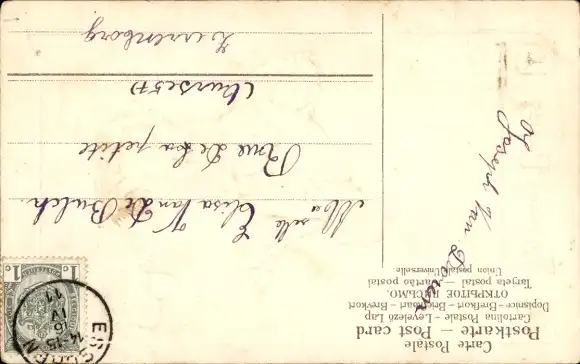 Carte Postale
Postkarte — Post card
Cartolina Postale - Levelező Lap
Dopisnice - Brefkort - Briefkaart - Brevkort
ОТКРЫТОЕ ПИСЬМО.
Tarjeta postal — Карта postal
Union postale Universelle
Joseph Van Doren
Melle Elisa Van De Bulck
Rue De La petite
Ourse 5
Zurenborg
1c 1c
14-15
16
IV
11